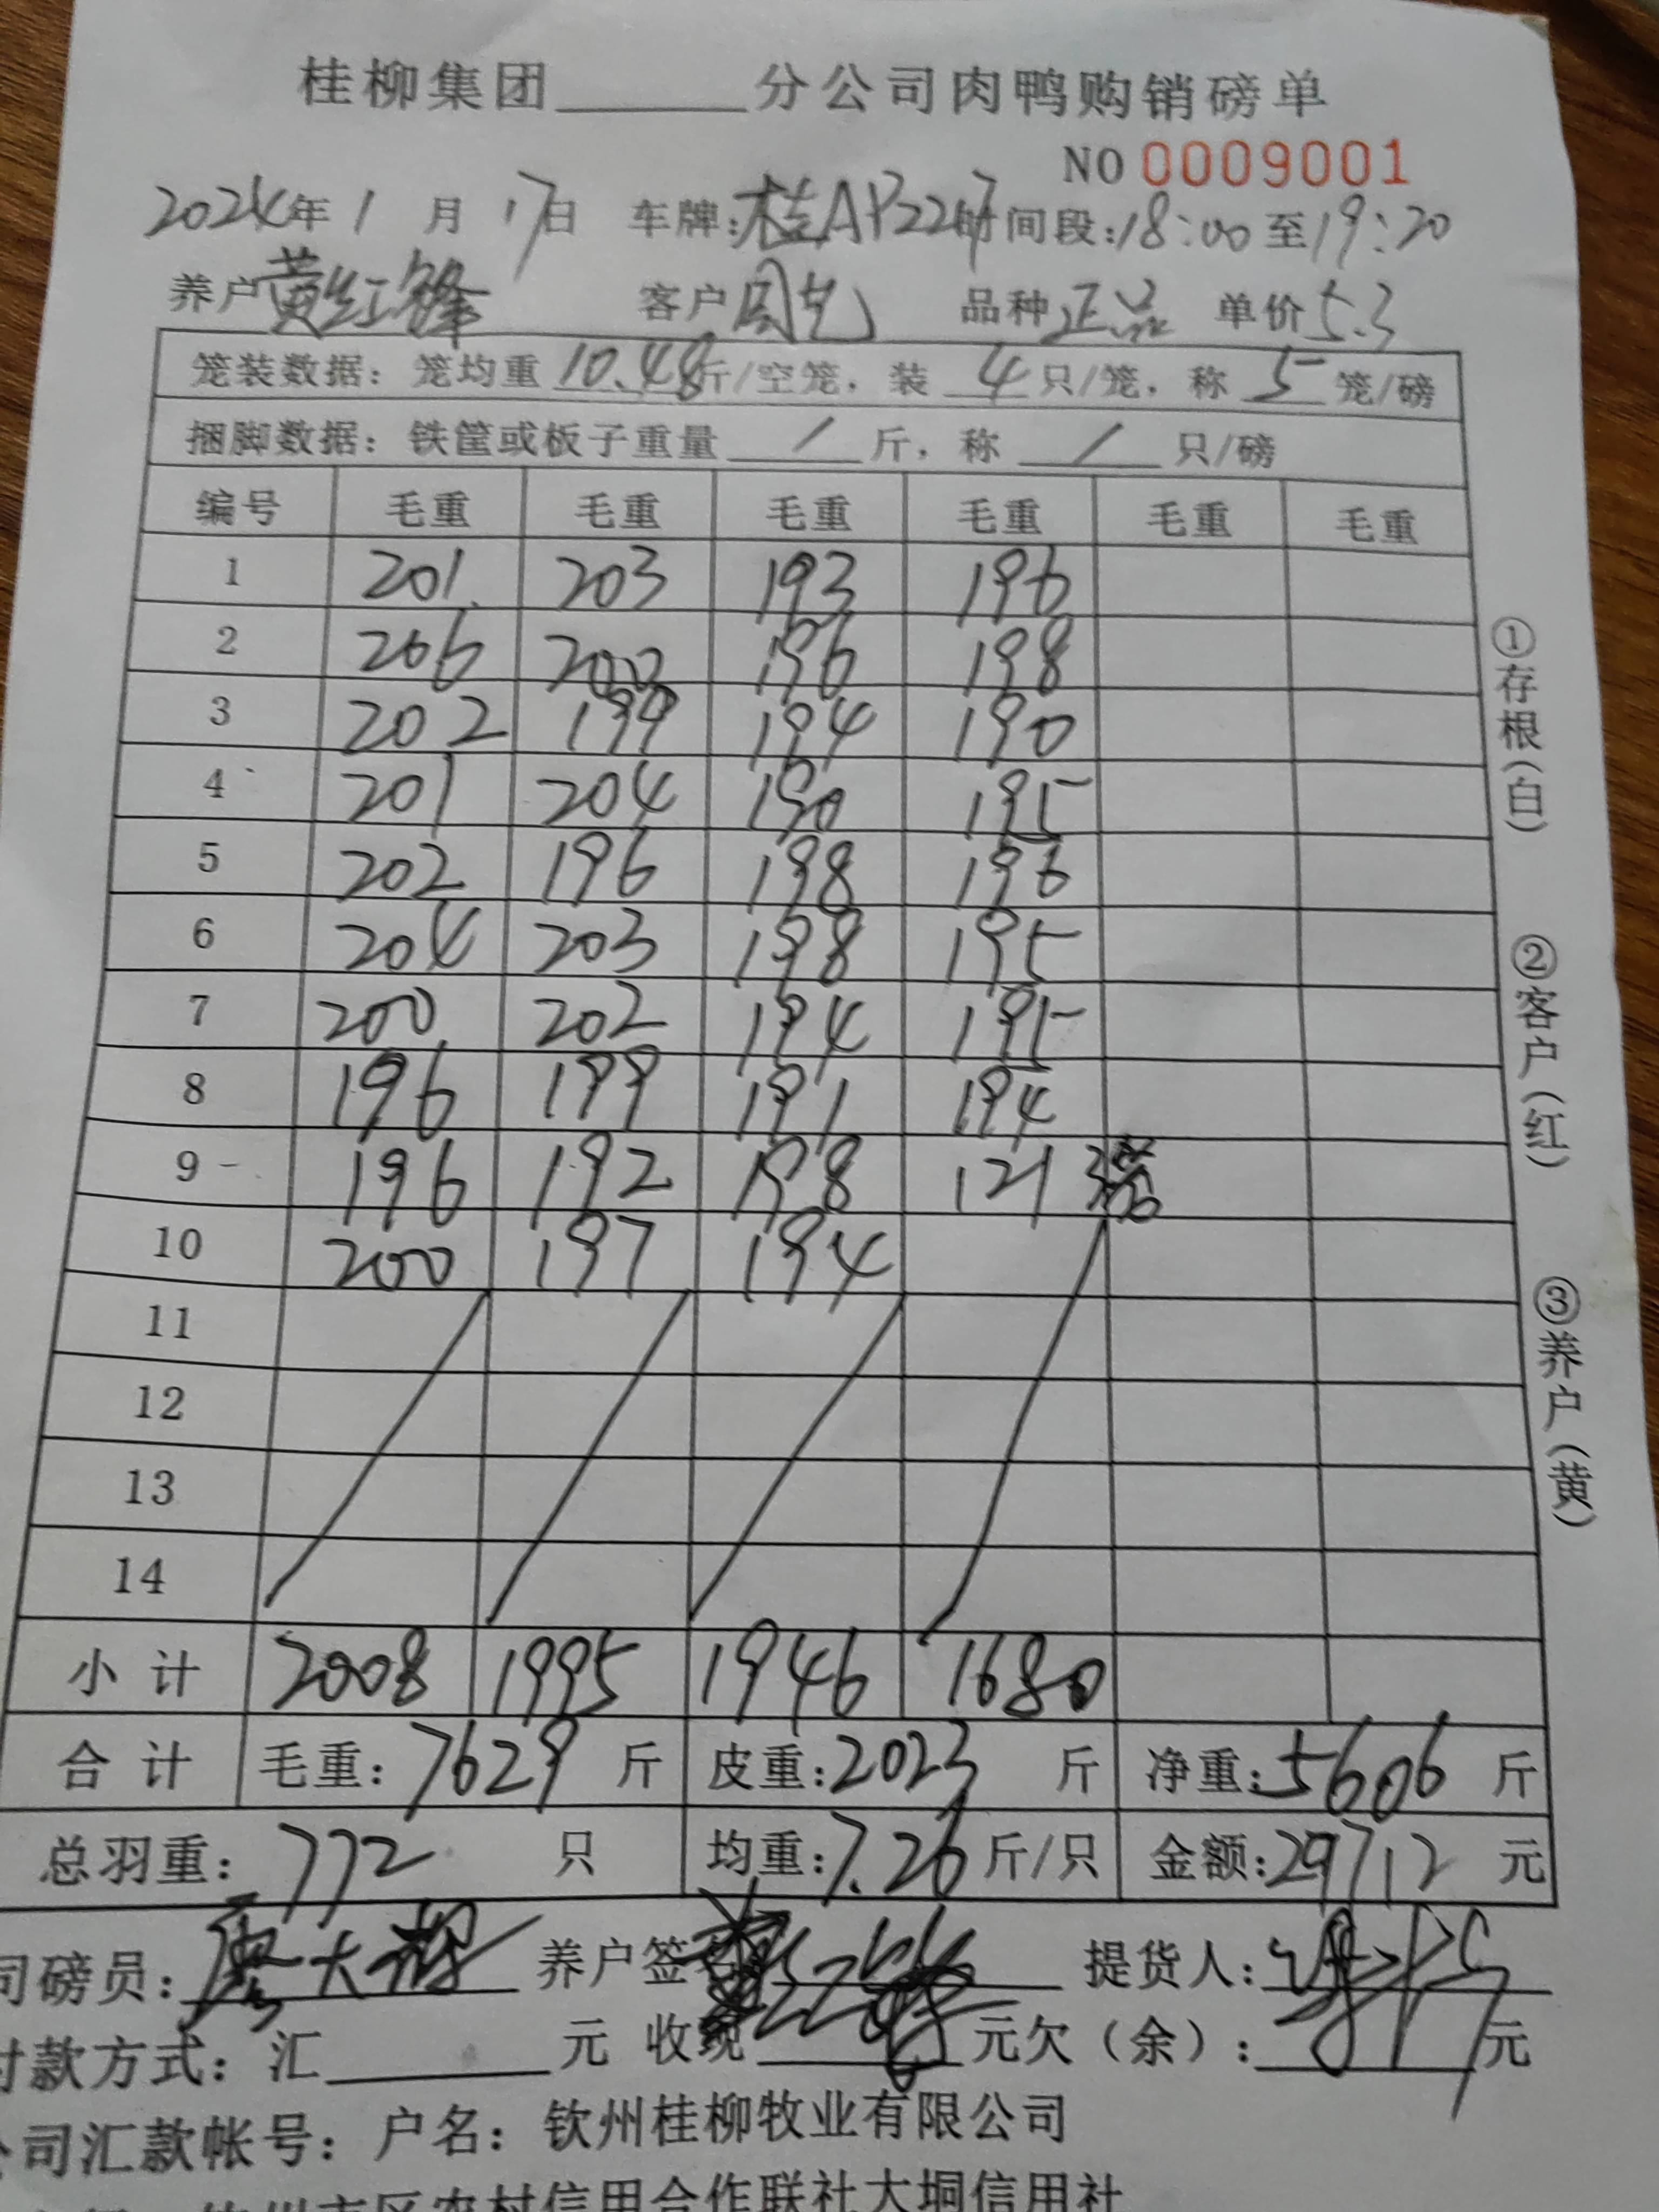 桂柳集团______分公司肉鸭购销磅单
NO 0009001
2024年1月17日 车牌:桂AP2247 时间段:18:00至19:20
养户黄红锋 客户周艺 品种正品 单价5.3
笼装数据：笼均重10.48斤/空笼，装4只/笼，称5笼/磅
捆脚数据：铁筐或板子重量 / 斤，称 / 只/磅
编号 毛重 毛重 毛重 毛重 毛重 毛重
1 201 203 193 196
2 206 200 196 198
3 202 199 194 190
4 201 204 190 195
5 202 196 198 196
6 204 203 198 195
7 200 202 194 195
8 196 199 191 194
9 196 192 198 121 3笼
10 200 197 194
11
12
13
14
小计 2008 1995 1946 1680
合计 毛重：7629斤 皮重:2023斤 净重:5606斤
总羽重：772只 均重:7.26斤/只 金额:29712元
司磅员: 养户签名 提货人:
付款方式：汇______元 收现______元欠（余）:______元
公司汇款帐号：户名：钦州桂柳牧业有限公司
钦州市区农村信用合作联社大垌信用社
①存根(白)
②客户(红)
③养户(黄)